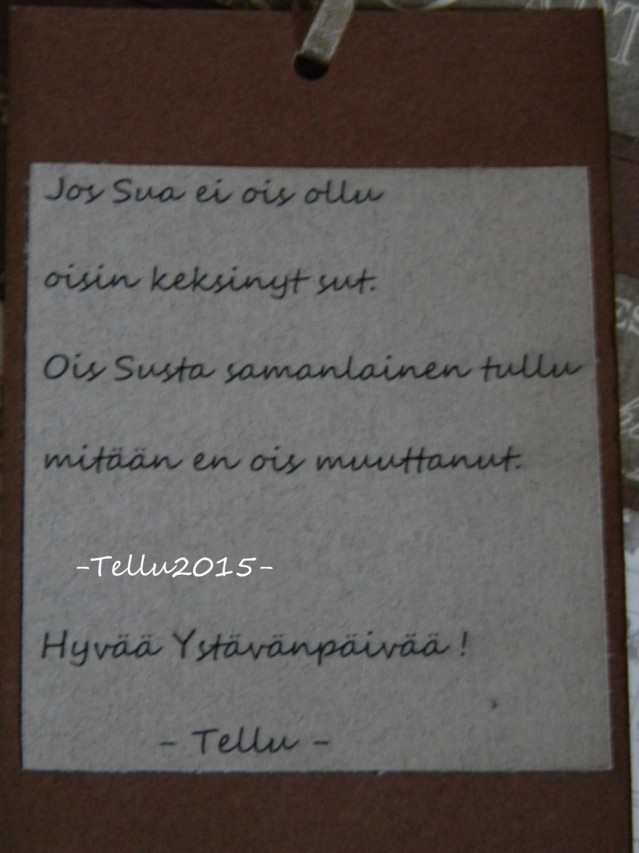 Jos Sua ei ois ollu
oisin keksinyt sut.
Ois Susta samanlainen tullu
mitään en ois muuttanut.
-Tellu2015-
Hyvää Ystävänpäivää !
- Tellu -